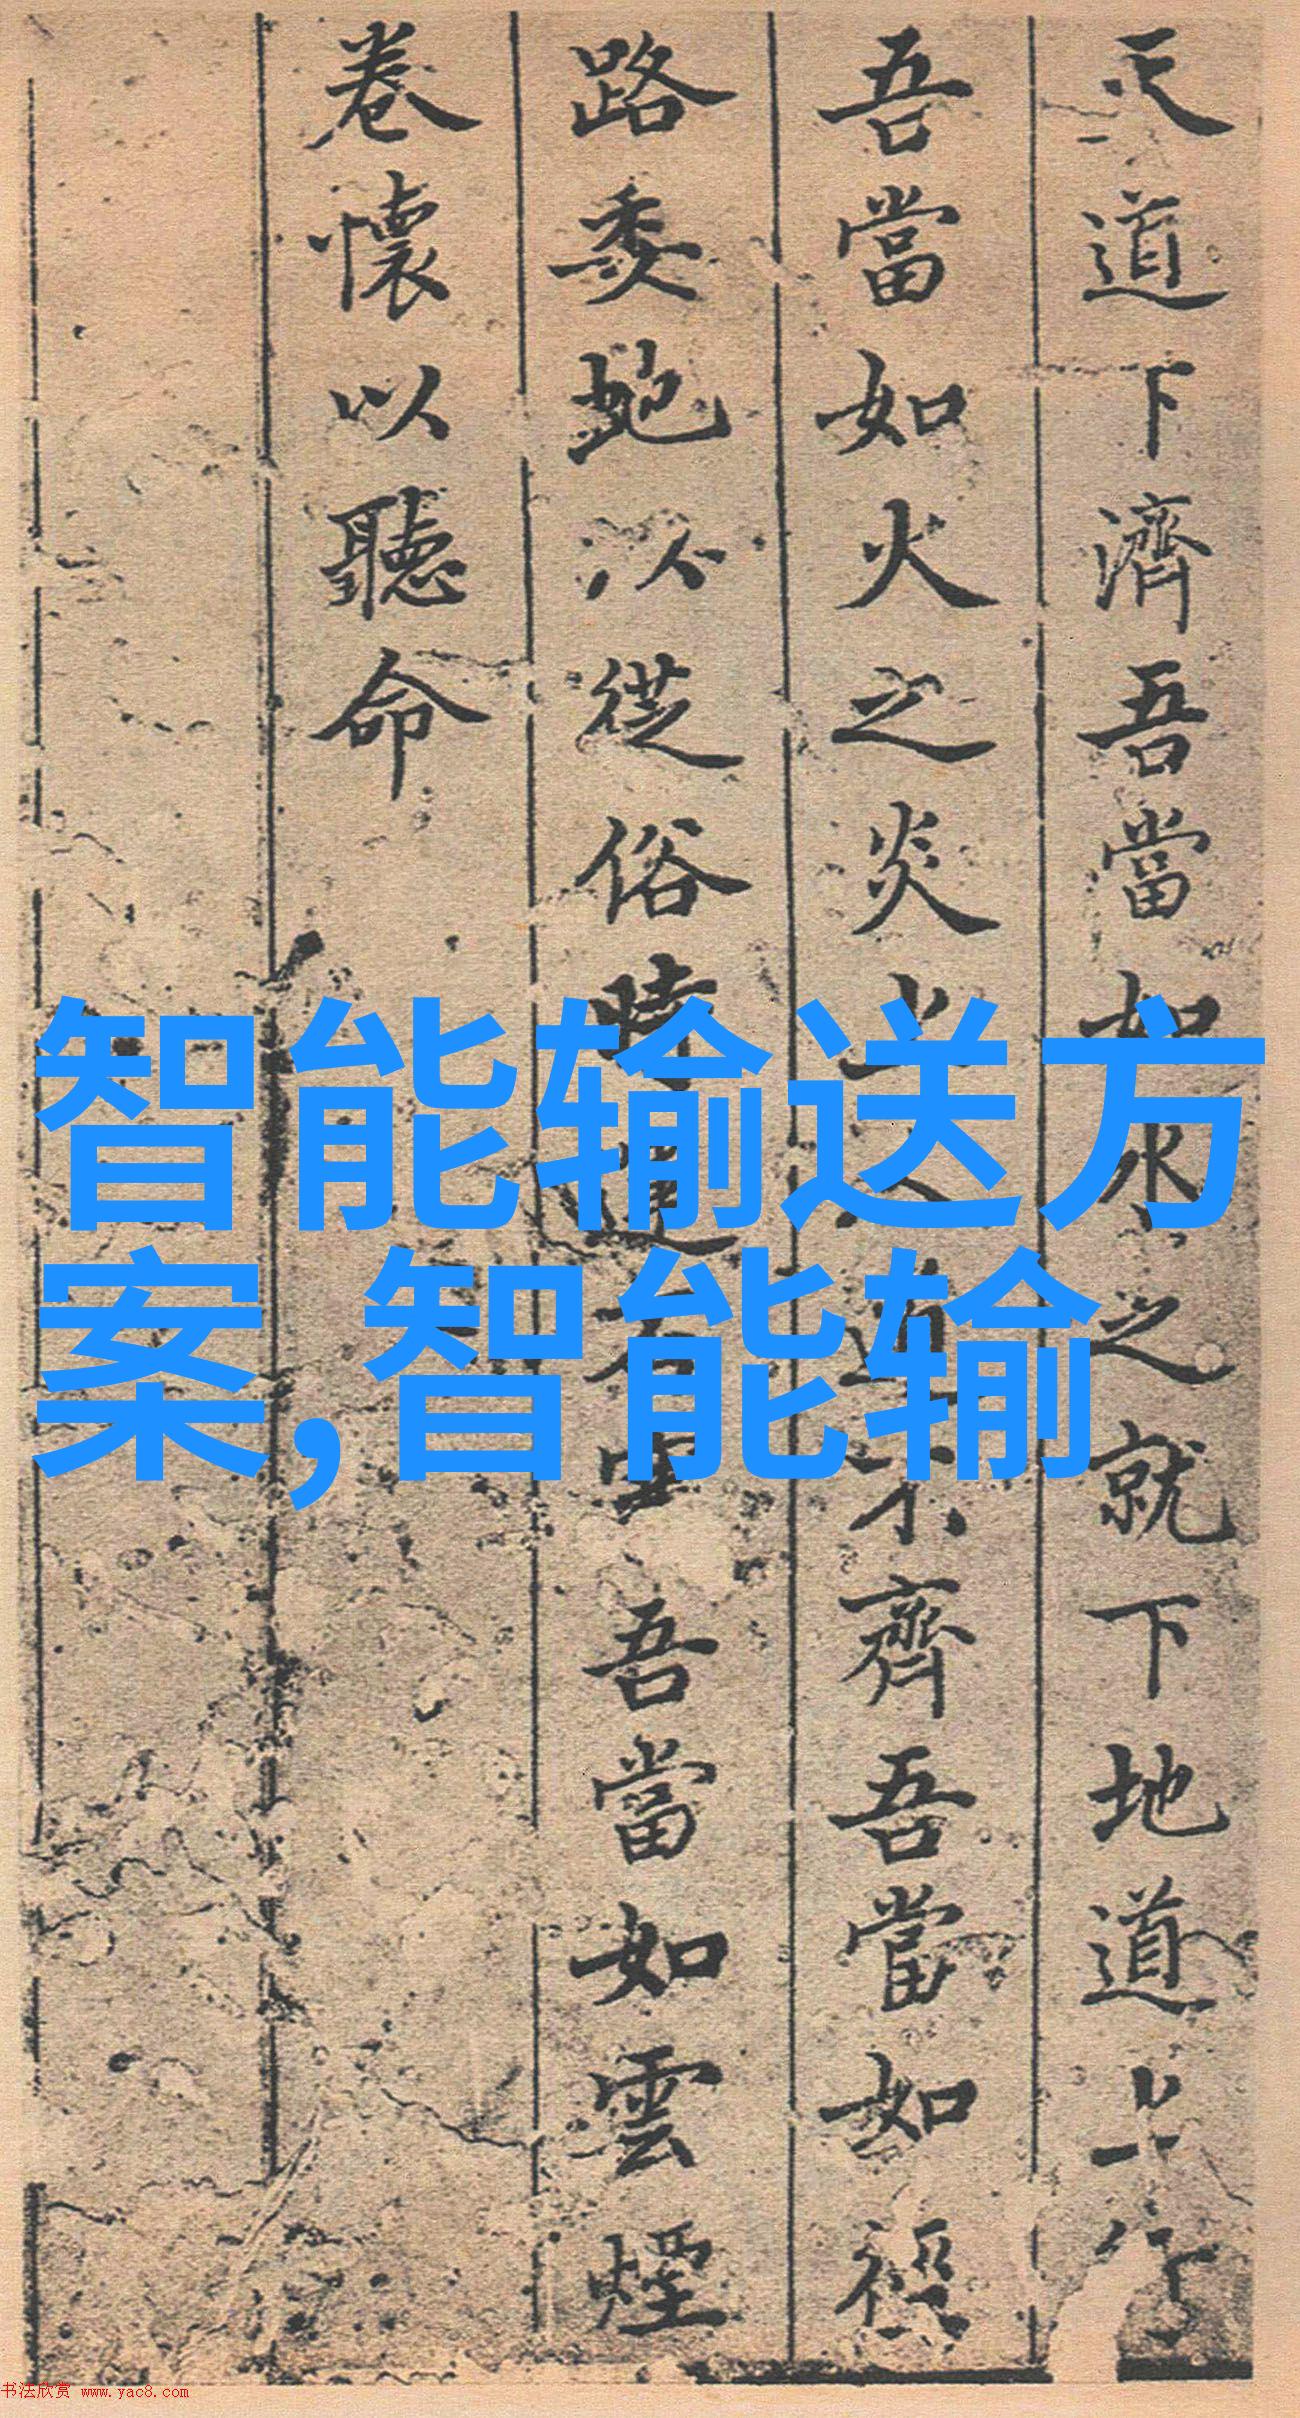 天道下濟吾當如水之就下地道上行
吾當如火之炎上人道不齊吾當如徑
路委蛇以從俗時達不里吾當如雲煙
卷懷以聽命
智能输送方
案,智能输
书法欣赏 www.yac8.com